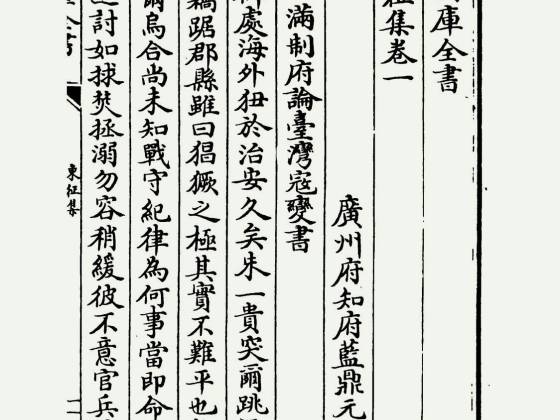 庫全書
征集卷一
廣州府知府藍鼎元
滿制府論臺灣寇變書
處海外狃於治安久矣朱一貴突爾跳
竊踞郡縣雖曰猖獗之極其實不難平也
爾烏合尚未知戰守紀律為何事當即命
討如捄焚拯溺勿容稍緩彼不意官兵
東征集